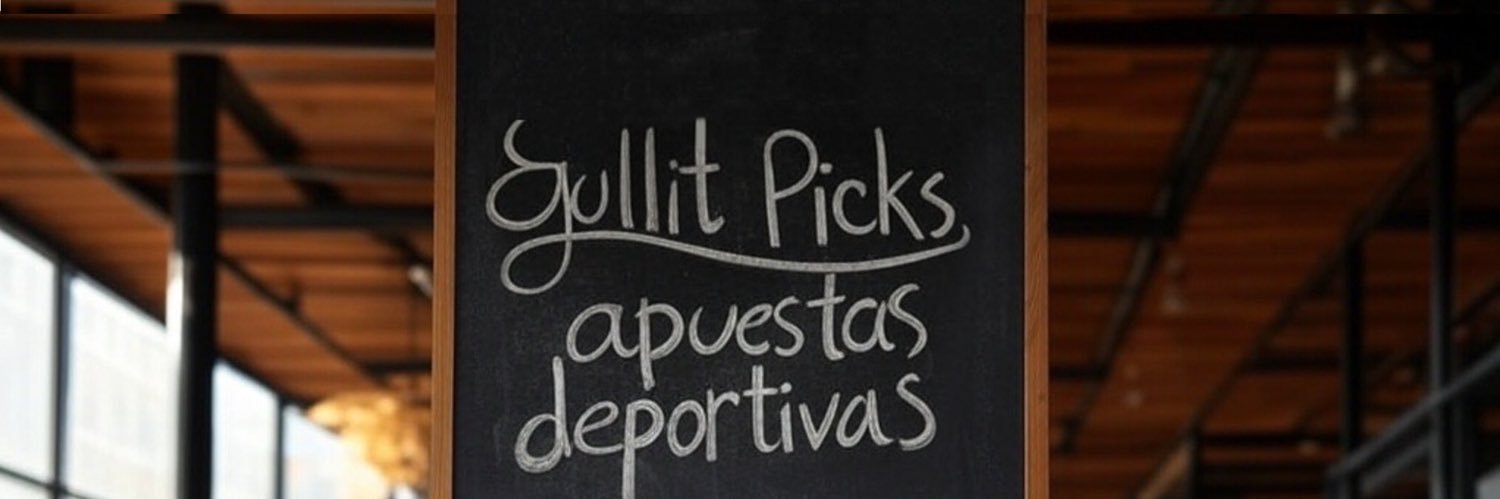 Gullit Picks
apuestas
deportivas